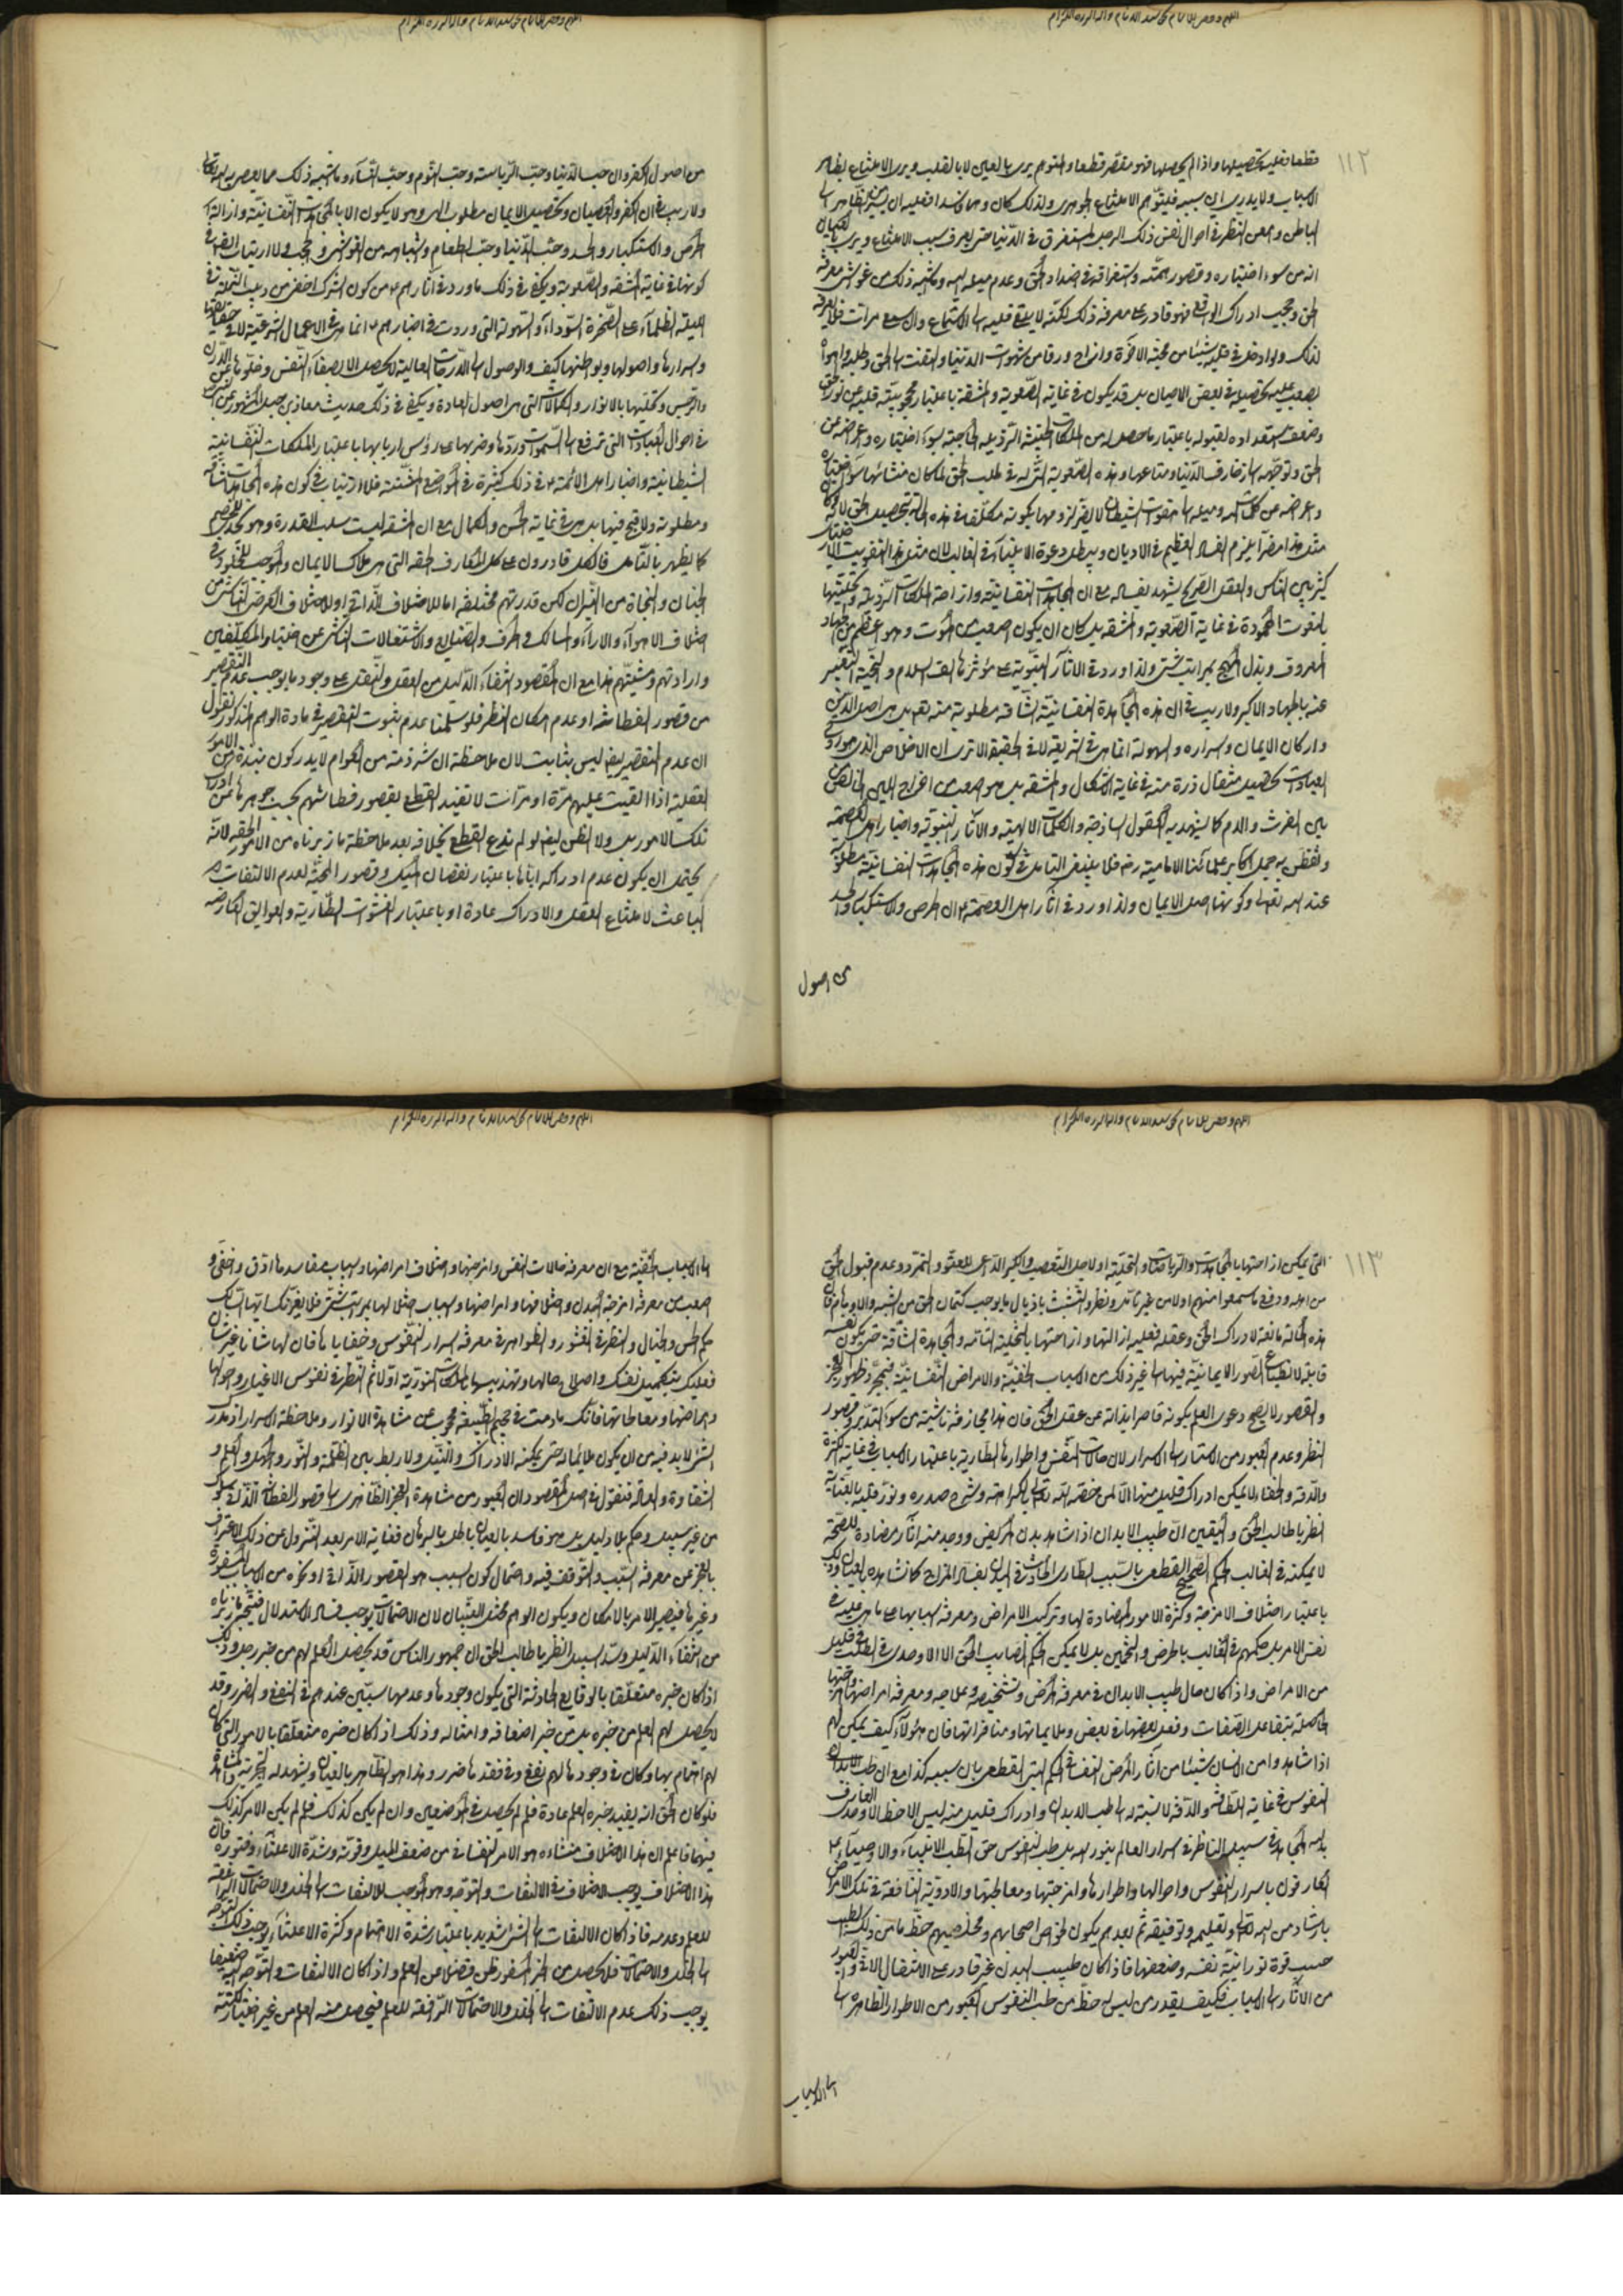 ١١٢
قطعا فعليه تحصيلها واذا لم يحصلها فهو مقصر قطعا والمتوهم يرى بالعين لا بالقلب ويرى الامتناع بظاهر
الاسباب ولا يدرى ان سببه فليتوهم الامتناع الجوهرى ولذلك كان وهما فاسدا فعليه ان يسير من الظاهر الى
الباطن ويمعن النظر فى احوال نفس ذلك الرجل المستغرق فى الدنيا حتى يعرف سبب الامتناع ويرى بالعيان
انه من سوء اختياره وقصور همته واستغراقه فى اضداد الحق وعدم ميله اليه
الحق ادراك الواقع فهو قادر على معرفة ذلك لكنه لا يلقى قلبه الى الاستماع
لذلك ولو ادخل فى قلبه شيئا من محبة الآخرة من شهوات الدنيا والتفت الى الحق وطلبه
تحصيله فى بعض الاحيان بل قد يكون فى غاية الصعوبة والمشقة باعتبار محجوبية قلبه عن نور الحق
وضعف استعداده لقبوله باعتبار ما حصل له من الملكات الخبيثة الرذيلة بسوء اختياره واعراضه عن
الحق وتوجهه الى زخارف الدنيا ومتاعها وهذه الصعوبة فى طلب الحق لما كان منشائها سوء اختياره
مثل هذا يلزم الفساد العظيم فى الاديان ويبطل دعوة الانبياء فى الغالب لان مثل هذا
كثير بين الناس والعقل الصريح يشهد بفساده مع ان المجاهدات النفسانية وازاحة الملكات الرذيلة وتحليتها
بالنعوت المحمودة فى غاية الصعوبة والمشقة بل كان ان يكون اصعب من الموت وهو اعظم من الجهاد
المعروف وبذل المهج بمراتب شتى ولذا ورد فى الآثار النبوية على مؤثرها الف السلام والتحية التعبير
عنه بالجهاد الاكبر ولا ريب فى ان هذه المجاهدة النفسانية الشاقة مطلوبة منه تعالى بل هى اصل الدين
واركان الايمان واسراره والسهولة انما هى فى الشريعة لا فى الحقيقة الا ترى ان الاخلاص الذى هو روح
العبادات تحصيل مثقال ذرة منه فى غاية الاشكال والمشقة بل هو اصعب من اخراج اللبن الخالص
بين الفرث والدم كما يشهد به العقول الساذجة والكلمات الالهية والآثار النبوية واخبار اهل العصمة
وتفطن به جمل اكابر علمائنا الامامية رض فلا ينبغى التامل فى كون هذه المجاهدات النفسانية مطلوبة
عند الله تعالى وكونها اصل الايمان ولذا ورد فى آثار اهل العصمة ان الحرص والاستكبار والحسد
من اصول
من اصول الكفر وان حب الدنيا وحب الرياسة وحب النوم وحب النساء وما اشبه ذلك مما يعصى به الله تعالى
ولا ريب فى ان الكفر والعصيان وتحصيل الايمان مطلوب الله وهو لا يكون الا بالمجاهدات النفسانية وازالة
الحرص والاستكبار والحسد وحب الدنيا وحب الطعام
كونها فى غاية المشقة والصعوبة ويكفى فى ذلك ما ورد فى آثارهم من كون الشرك اخفى من دبيب النملة فى
الليلة الظلماء على الصخرة السوداء والسهولة التى وردت فى اخبارهم انما هى فى الاعمال الشرعية لا فى حقايقها
واسرارها واصولها وبواطنها كيف والوصول الى الدرجات العالية لا يحصل الا بصفاء النفس وخلوها عن
والرجس وتحليها بالانوار والكمالات التى هى اصول السعادة ويكفى فى ذلك حديث معاذ بن جبل المشهور
فى احوال العبادات التى ترفع الى السموات وردها وضربها على رؤس اربابها باعتبار الملكات النفسانية
الشيطانية واخبار اهل الائمة فى ذلك كثيرة فى المواضع المتشتتة فلا ارتياب فى كون هذه المجاهدات شاقة
ومطلوبة ولا قبح فيها بل هى فى غاية الحسن والكمال مع ان المشقة ليست بسلب القدرة
كما يظهر بالتامل فالكل قادرون على كل المعارف الحقة التى هى ملاك الايمان والموجب للخلود فى
الجنان والنجاة من النيران لكن قدرتهم مختلفة اما لاختلاف الذاتى او لاختلاف العرضى الناشى من
اختلاف الاهواء والآراء والمسالك فى الحرف والصنايع والاشتغالات الناشى عن اختيار المكلفين
وارادتهم ومشيتهم هذا مع ان المقصود انتفاء الدليل من العقل والنقل على وجود ما يوجب عدم التقصير
من قصور الفطانة او عدم امكان النظر فلو سلمنا عدم ثبوت التقصير فى مادة الوهم المذكور نقول
ان عدم التقصير ايضا ليس بثابت لان ملاحظة ان شرذمة من العوام لا يدركون نبذة من الامور
العقلية اذا القيت عليهم مرة او مرات لا تفيد القطع بقصور فطانتهم بحسب جوهرها عن ادراك
تلك الامور بل ولا الظن ايضا لو لم ندع القطع بخلافه بعد ملاحظة ما زبرناه من الامور الحقة لانه
يحتمل ان يكون عدم ادراكه اياها باعتبار نقصان الميل وقصور المحبة لعدم الالتفات
الباعث لامتناع العقل والادراك عادة او باعتبار الغشوات الطارية والعوايق العارضة
١١٣
التى يمكن ازاحتها بالمجاهدات والرياضات والتخلية او لاجل التعصب والكبر الداعى للعتو والتمرد وعدم قبول الحق
من اهله
هذه الحالة مانعة لادراك الحق وعقله فعليه ازالتها وازاحتها بالتخلية التامة والمجاهدة الشاقة حتى يكون نفسه
قابلة لانطباع الصور الايمانية فيها الى غير ذلك من الاسباب الخفية والامراض النفسانية فبمجرد ظهور العجز
والقصور لا يصح دعوى العلم بكونه قاصرا بذاته عن عقل الحق فان هذا مجازفة ناشية من سوء التدبر وقصور
النظر وعدم العبور من الاستار الى الاسرار لان حالات النفس واطوارها الطارية باعتبار الاسباب فى غاية الكثرة
والدقة والخفاء لا يمكن ادراك قليل منها الا لمن خصه الله تعالى لكرامته وشرح صدره ونور قلبه
انظر يا طالب الحق واليقين ان طبيب الابدان اذا شاهد بدن المريض ووجد منه آثار مضادة للصحة
لا يمكنه فى الغالب الحكم الصحيح القطعى بالسبب الطارى الحادث فى البدن بفساد المزاج كما نشاهده بالعيان وذلك
باعتبار اختلاف الامزجة وكثرة الامور المضادة لها وتركيب الامراض ومعرفة اسبابها على ما هى عليه فى
نفس الامر بل حكمهم فى الغالب بالخرص والتخمين بل لا يمكن الحكم الصايب الحق الا لاوحدى فى الطب فى قليل
من الامراض واذا كان حال طبيب الابدان فى معرفة المرض وتشخيصه وعلاجه ومعرفة امراضها
الحاصلة بتفاعل الصفات وفعل بعضها فى بعض وملايماتها ومنافراتها فان هؤلاء كيف يمكن لهم
اذا شاهدوا من الانسان شيئا من آثار المرض النفسانى الحكم البتى القطعى بان سببه كذا مع ان طب
النفوس فى غاية اللطافة والدقة لا نسبة له الى طب الابدان وادراك قليل منه ليس الا حظ الاوحدى العارف
بالله المجاهد فى سبيله الناظر فى اسرار العالم بنور الله بل طب النفوس حق لطب الانبياء والاوصياء
العارفون باسرار النفوس واحوالها واطوارها وامزجتها ومعالجتها والادوية النافعة فى تلك الامراض
بارشاد من الله تعالى وتعليمه وتوفيقه ثم بعدهم يكون لخواص اصحابهم ومخلصيهم حظ ما من ذلك الطب
حسب قوة نورانية نفسه وضعفها فاذا كان طبيب البدن غير قادر على الانتقال والعبور
من الآثار الى الاسباب فكيف يقدر من ليس له حظ من طب النفوس العبور من الاطوار الظاهرة الى
الى الاسباب
الى الاسباب الخفية مع ان معرفة حالات النفس وامزجتها واختلاف امراضها واسباب مفاسدها ادق واخفى و
اصعب من معرفة امزجة البدن واختلافها وامراضها واسباب اختلالها بمراتب شتى فلا يغرنك ايها السالك
حكم الحس والخيال والنظر فى القشور والظواهر فى معرفة اسرار النفوس وخفاياها فان لها شانا غير شان
فعليك بتكميل نفسك واصلاح حالها وتهذيبها بالملكات النورية اولا ثم النظر فى نفوس الاغيار واحوالها
وامراضها ومعالجاتها فانك ما دمت فى جحيم الطبيعة محجوب عن مشاهدة الانوار وملاحظة الاسرار اذ مدرك
الشئ لا بد فيه من ان يكون ملائما له حتى يمكنه الادراك والنيل ولا ربط بين الظلمة والنور والجهل والعلم و
الشقاوة والسعادة فنقول فى اصل المقصود ان العبور من مشاهدة العجز الظاهرى الى قصور الفطانة الذاتى سلوك
من غير سبيل وحكم بلا دليل بل هو فاسد بالعيان باطل بالبرهان فغاية الامر بعد التنزل عن ذلك الاعتراف
بالعجز عن معرفة السبب والتوقف فيه واحتمال كون السبب هو القصور الذاتى او نحوه من الاسباب
وغيرها فيصير الامر بالامكان ويكون الوهم مختل البنيان لان الاحتمالات يوجب فساد الاستدلال فيتم ما زبرناه
من انتفاء الدليل وسد السبيل انظر يا طالب الحق ان جمهور الناس قد يحصل العلم لهم من خبر رجل وذلك
اذا كان خبره متعلقا بالوقايع الحادثة التى يكون وجودها وعدمها سيين عندهم فى النفع والضرر وقد
لا يحصل لهم العلم من خبره بل من خبر اضعافه وامثاله وذلك اذا كان خبره متعلقا بالامور التى كان
لهم اهتمام بها وكان فى وجودها لهم نفع وفى فقدها ضرر وهذا هو الظاهر بالعيان ويشهد له التجربة والمشاهدة
فلو كان الحق انه يفيد خبره العلم عادة فلم لم يحصل فى الموضعين وان لم يكن كذلك فلم لم يكن الامر كذلك
فيهما فاعلم ان هذا الاختلاف منشاؤه هو الامر النفسانى من ضعف الميل وقوته وشدة الاعتناء وفتوره فان
هذا الاختلاف يوجب الاختلاف فى الالتفات والتوجه وهو الموجب للالتفات الى الخلل والاحتمالات الرافعة
للعلم وعدمه فاذا كان الالتفات الى الشئ شديدا باعتبار شدة الاهتمام وكثرة الاعتناء يوجب ذلك التوجه
الى الخلل والاحتمالات فلا يحصل من الخبر المفروض ظن فضلا عن العلم واذا كان الالتفات والتوجه ضعيفا
يوجب ذلك عدم الالتفات الى الخلل والاحتمالات الرافعة للعلم فيحصل منه العلم من غير